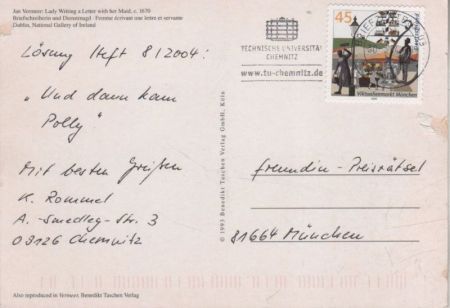 Jan Vermeer: Lady Writing a Letter with her Maid, c. 1670
Briefschreiberin und Dienstmagd · Femme écrivant une lettre et servante
Dublin, National Gallery of Ireland
Lösung Heft 8/2004:
"Und dann kam
Polly"
Mit besten Grüßen
K. Rommel
A.-Smedley-Str. 3
09126 Chemnitz
Also reproduced in Vermeer, Benedikt Taschen Verlag
© 1993 Benedikt Taschen Verlag GmbH, Köln
TECHNISCHE UNIVERSITÄT
CHEMNITZ
www.tu-chemnitz.de
45
Viktualienmarkt München
freundin-Preisrätsel
81664 München